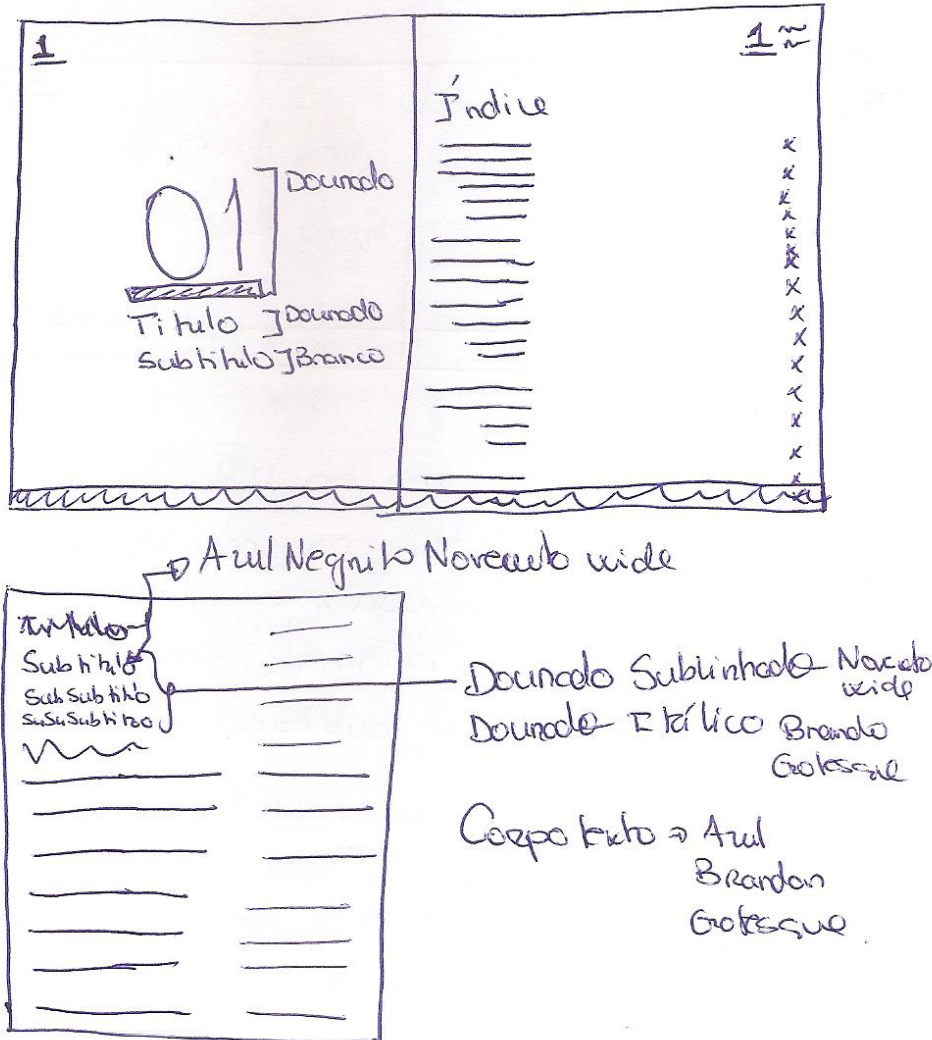 1
1
Índice
01
Dourado
Titulo
Dourado
Subtitulo
Branco
Azul Negrito Novecento wide
Titulo
Subtitulo
SubSubtitulo
SuSuSubtitulo
Dourado Sublinhado Novecento wide
Dourado Itálico Brandon Grotesque
Corpo texto ⇒ Azul
Brandon
Grotesque